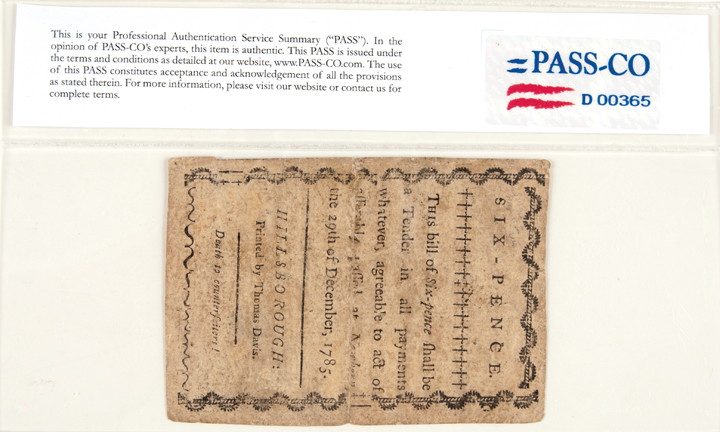 This is your Professional Authentication Service Summary ("PASS"). In the
opinion of PASS-CO's experts, this item is authentic. This PASS is issued under
the terms and conditions as detailed at our website, www.PASS-CO.com. The use
of this PASS constitutes acceptance and acknowledgement of all the provisions
as stated therein. For more information, please visit our website or contact us for
complete terms.
PASS-CO
D 00365
SIX-PENCE.
THIS bill of Six-pence ſhall be
a Tender in all payments
whatever, agreeable to act of
aſſembly, paſſed at
the 29th of December, 1785.
HILLSBOROUGH:
Printed by Thomas Davis.
Death to counterfeiters!